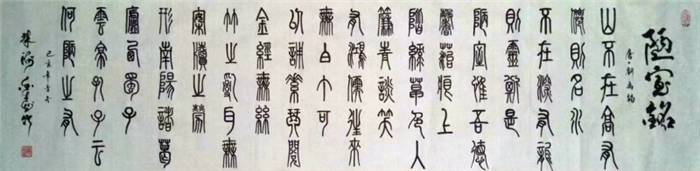 陋室銘
唐·劉禹錫
山不在高有
僊則名水
不在深有龍
則靈斯是
陋室惟吾德
馨苔痕上
階綠草色入
簾青談笑
有鴻儒往來
無白丁可
以調素琴閱
金經無絲
竹之亂耳無
案牘之勞
形南陽諸葛
廬西蜀子
雲亭孔子云
何陋之有
己亥年